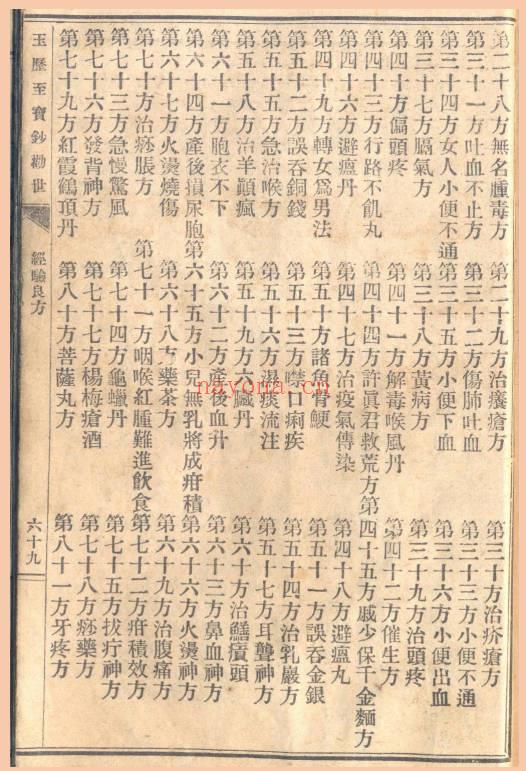 第二十八方無名腫毒方　第二十九方治癢瘡方　第三十方治疥瘡方
第三十一方吐血不止方　第三十二方傷肺吐血　第三十三方小便不通
第三十四方女人小便不通　第三十五方小便下血　第三十六方小便出血
第三十七方膈氣方　第三十八方黃病方　第三十九方治頭疼
第四十方偏頭疼　第四十一方解毒喉風丹　第四十二方催生方
第四十三方行路不飢丸　第四十四方許眞君救荒方　第四十五方戚少保千金麵方
第四十六方避瘟丹　第四十七方治疫氣傳染　第四十八方避瘟丸
第四十九方轉女爲男法　第五十方諸魚骨鯁　第五十一方誤吞金銀
第五十二方誤吞銅錢　第五十三方噤口痢疾　第五十四方治乳巖方
第五十五方急治喉方　第五十六方濕痰流注　第五十七方耳聾神方
第五十八方治羊顚瘋　第五十九方六臟丹　第六十方治鱔㿉頭
第六十一方胞衣不下　第六十二方產後血升　第六十三方鼻血神方
第六十四方產後損尿胞　第六十五方小兒無乳將成疳積　第六十六方火燙神方
第六十七方火燙燒傷　第六十八方藥茶方　第六十九方治腹痛方
第七十方治痧脹方　第七十一方咽喉紅腫難進飲食　第七十二方疳積效方
第七十三方急慢驚風　第七十四方龜蠟丹　第七十五方拔疔神方
第七十六方發背神方　第七十七方楊梅瘡酒　第七十八方痧藥方
第七十九方紅霞鶴頂丹　第八十方菩薩丸方　第八十一方牙疼方
玉歷至寶鈔勸世　經驗良方　六十九
nayona.cn